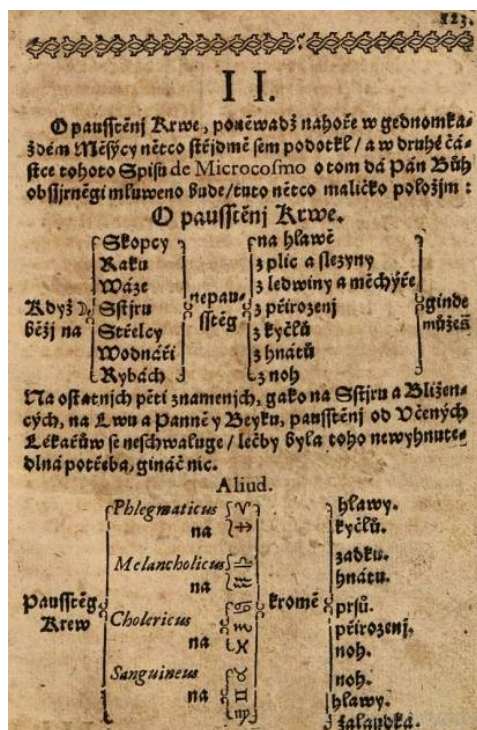 123.
II.
O pausstěnj Krwe, poněwadž nahoře w gednomka-
ždém Měsýcy nětco stějdmě sem podotkl / a w druhé čá-
stce tohoto Spisu de Microcosmo o tom dá Pán Bůh
obssyrněgi mluweno bude / tuto nětco maličko položjm :
O pausstěnj Krwe.
Když ☽ běžj na
Skopcy
Raku
Wáze
Sstjru
Střelcy
Wodnáři
Rybách
nepau-
sstěg
na hlawě
z plic a slezyny
z ledwiny a měchýře
z přirozenj
z kyčlů
z hnátů
z noh
ginde
můžeš
Na ostatnjch pěti znamenjch, gako na Sstjru a Bližen-
cých, na Lwu a Panně y Beyku, pausstěnj od Včených
Lékařůw se neschwaluge / lečby byla toho newyhnute-
dlná potřeba, gináč nic.
Aliud.
Pausstěg
Krew
Phlegmaticus
na
♈
♐
Melancholicus
na
♎
♒
Cholericus
na
♋
♏
♓
Sanguineus
na
♉
♊
♍
kromě
hlawy.
kyčlů.
zadku.
hnátu.
prsů.
přirozenj.
noh.
noh.
hlawy.
žaludka.